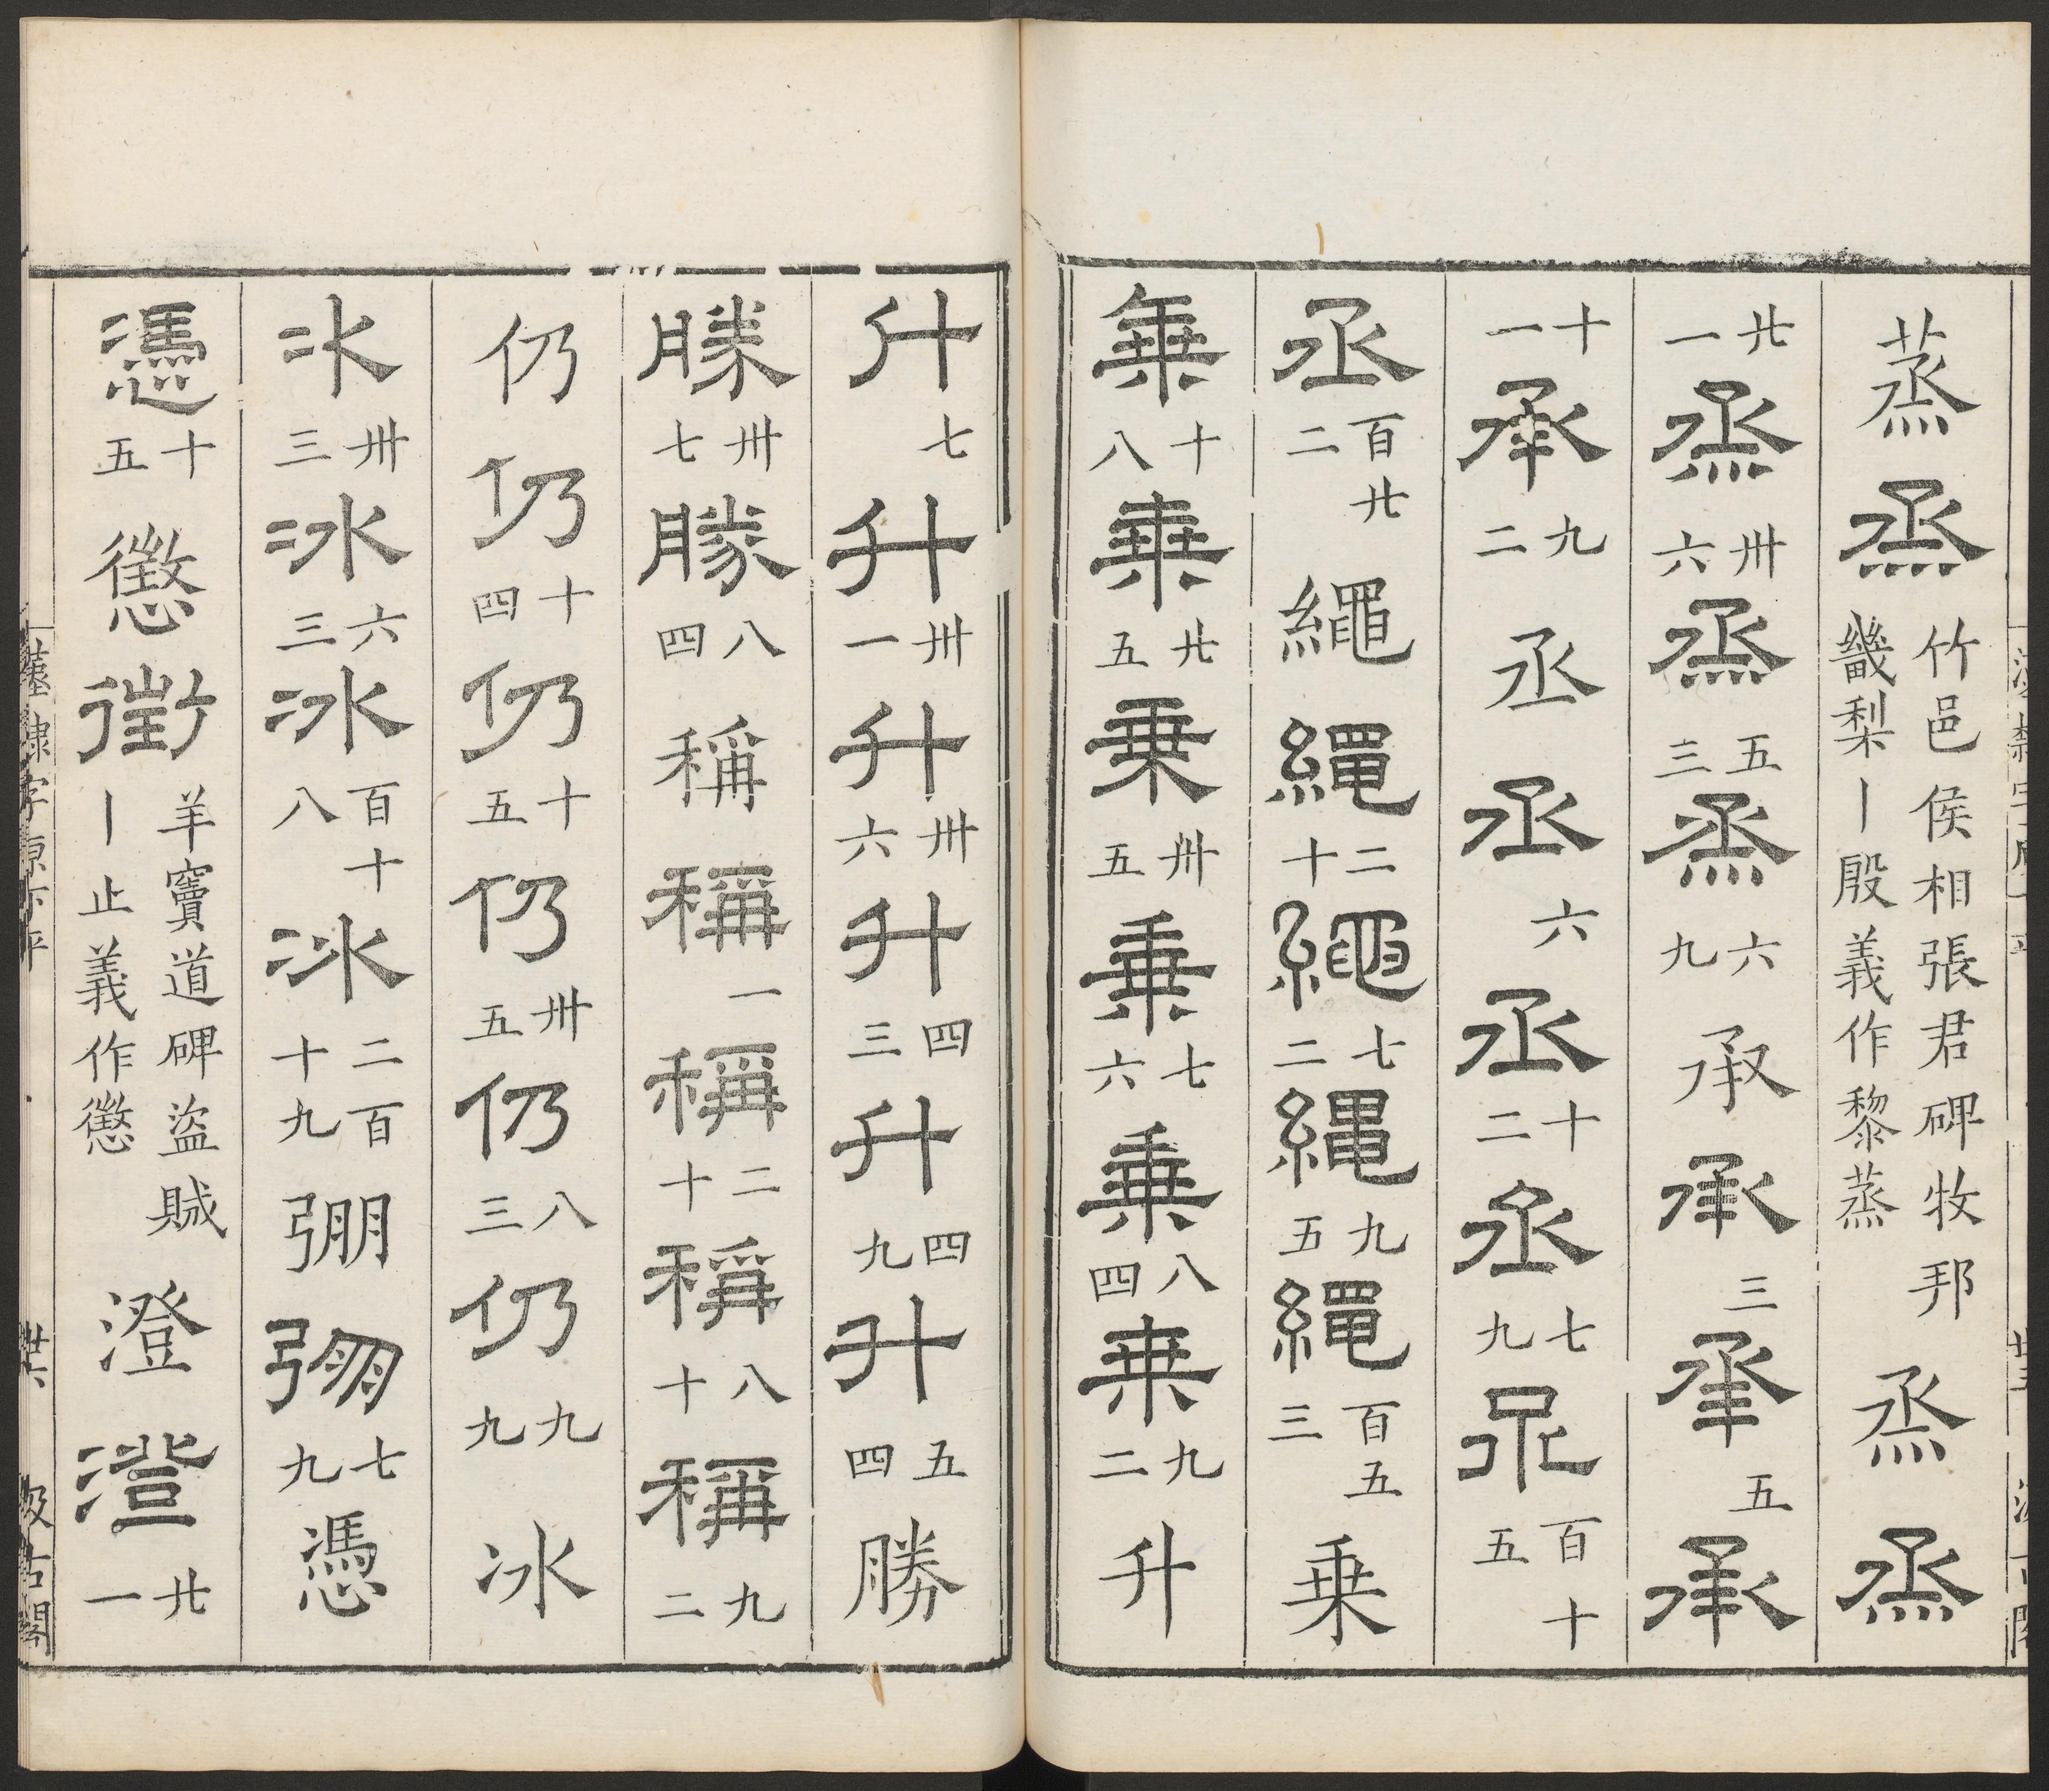 蒸 烝 竹邑侯相張君碑牧邦畿梨丨殷義作黎蒸 烝 烝
廿一 烝 卅六 烝 五三 烝 六九 承 承 三 承 五 承
十一 承 九二 丞 丞 六 丞 十二 丞 七九 丞 百十五
丞 百廿二 繩 繩 二十 繩 七二 繩 九五 繩 百五三 乗
乗 十八 乗 廿五 乗 卌五 乗 七六 乗 八四 乗 九二 升
升 七 升 卅一 升 卅六 升 四三 升 四九 升 五四 勝
勝 卅七 勝 八四 稱 稱 一 稱 二十 稱 八十 稱 九二
仍 仍 十四 仍 十五 仍 卅五 仍 八三 仍 九九 冰
冰 卅三 冰 六三 冰 百十八 冰 二百十九 弸 弸 七九 慿
慿 十五 懲 徵 羊竇道碑盜賊丨止義作懲 澄 澄 廿一
隸字原下平 汲古閣